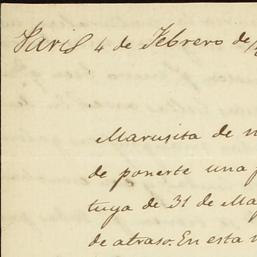 Paris 4 de Febrero de
Marusita de
de ponerte una
tuya de 31 de
de atraso. En esta